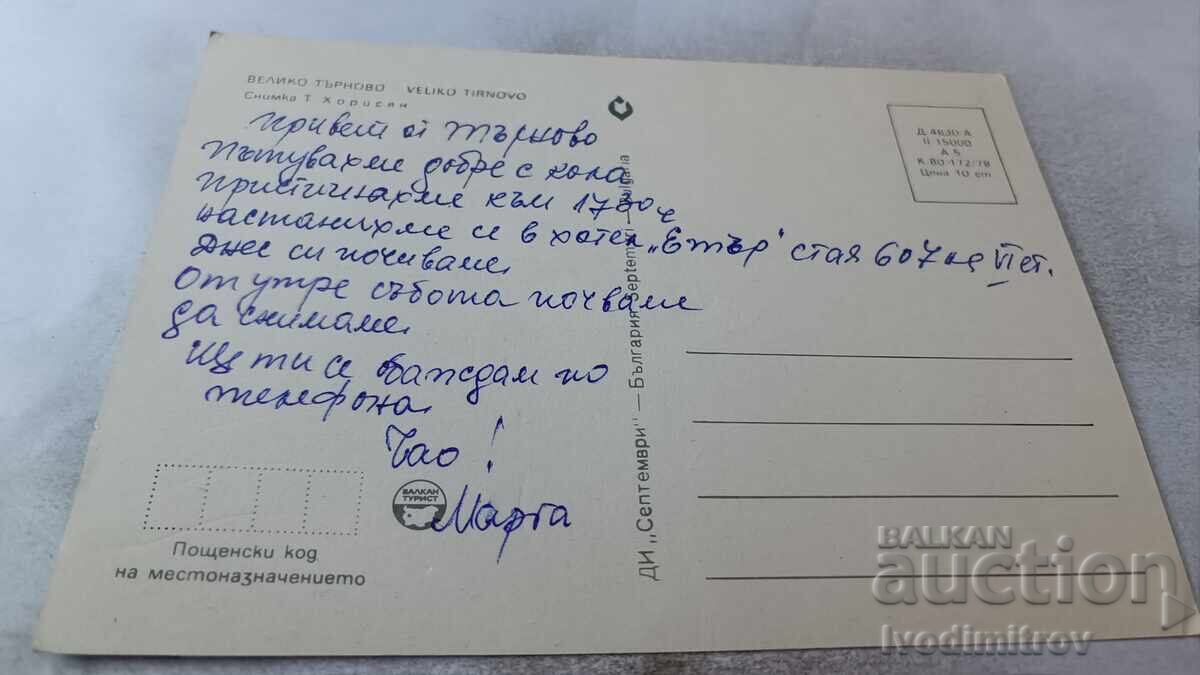 ВЕЛИКО ТЪРНОВО VELIKO TIRNOVO
Снимка Т. Хорисян
Привет от Търново
Пътувахме добре с кола
Пристигнахме към 17 30 ч
настанихме се в хотел „Етър" стая 607 на VI ет.
Днес си почиваме.
От утре събота почваме
да снимаме.
Ще ти се обаждам по
телефона.
Чао!
Марта
БАЛКАН
ТУРИСТ
Пощенски код
на местоназначението
ДИ „Септември" — България Septemvri — Bulgaria
Д 4630 А
II 15000
А 5
К 80 172/78
Цена 10 ст
BALKAN
auction
Ivodimitrov